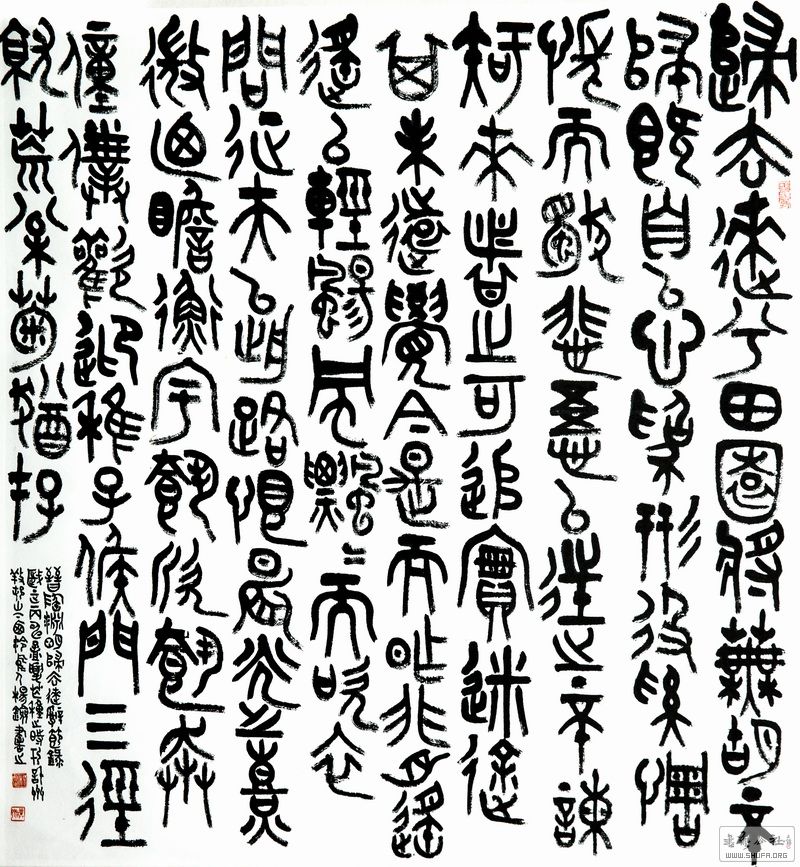 歸去來兮田園將蕪胡不
歸既自以心為形役奚惆
悵而獨悲悟已往之不諫
知來者之可追實迷途
其未遠覺今是而昨非舟遙
遙以輕颺風飄飄而吹衣
問征夫以前路恨晨光之熹
微乃瞻衡宇載欣載奔
僮僕歡迎稚子候門三徑
就荒松菊猶存
晉陶淵明歸去來辭節錄
WWW.SHUFA.ORG